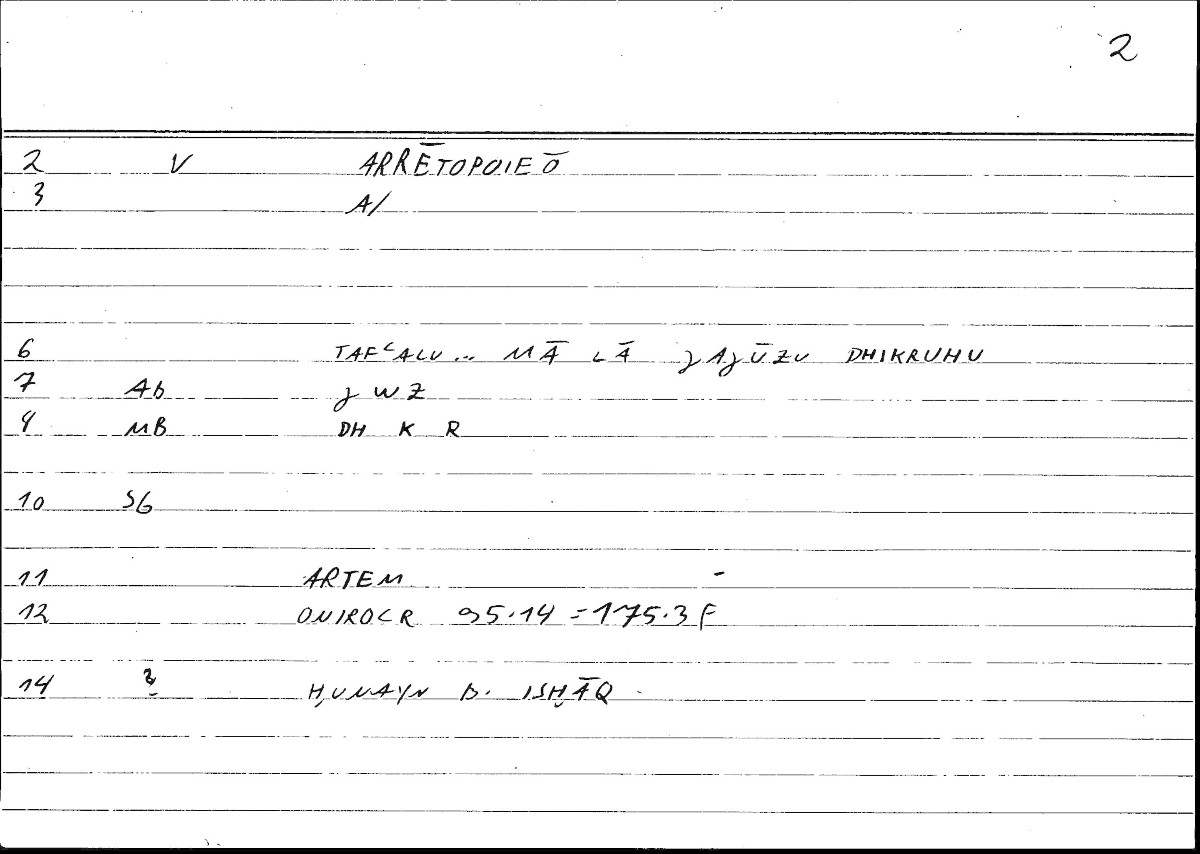 2
2 V ARRĒTOPOIEŌ
3 A/
6 TAFʿALU... MĀ LĀ JAJŪZU DHIKRUHU
7 Ab JWZ
9 MB DH K R
10 SG
11 ARTEM -
12 ONIROCR 95.14 = 175.3 F
14 ḤUNAYN B. ISḤĀQ